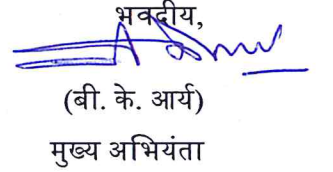 भवदीय,
(बी. के. आर्य)
मुख्य अभियंता